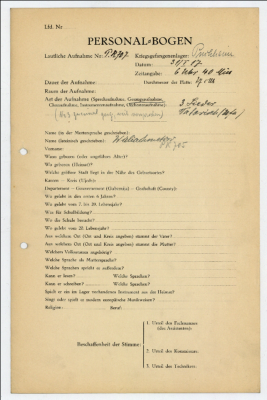 Lfd. Nr.
PERSONAL-BOGEN
Lautliche Aufnahme Nr. P.K. 707 Kriegsgefangenenlager: Puchheim
Datum: 31/I 17.
Zeitangabe: 6 Uhr 40 Min
Dauer der Aufnahme: Durchmesser der Platte: 27 cm
Raum der Aufnahme:
Art der Aufnahme (Sprechaufnahme, Gesangsaufnahme,
Choraufnahme, Instrumentenaufnahme, Orchesteraufnahme):
3 Lieder
Name (in der Muttersprache geschrieben):
Name (lateinisch geschrieben):
Vorname:
Wann geboren (oder ungefähres Alter)?
Wo geboren (Heimat)?
Welche größere Stadt liegt in der Nähe des Geburtsortes?
Kanton — Kreis (Ujedz):
Departement — Gouvernement (Gubernija) — Grafschaft (County):
Wo gelebt in den ersten 6 Jahren?
Wo gelebt vom 7. bis 20. Lebensjahr?
Was für Schulbildung?
Wo die Schule besucht?
Wo gelebt vom 20. Lebensjahr?
Aus welchem Ort (Ort und Kreis angeben) stammt der Vater?
Aus welchem Ort (Ort und Kreis angeben) stammt die Mutter?
Welchem Volksstamm angehörig?
Welche Sprache als Muttersprache?
Welche Sprachen spricht er außerdem?
Kann er lesen? Welche Sprachen?
Kann er schreiben? Welche Sprachen?
Spielt er ein im Lager vorhandenes Instrument aus der Heimat?
Singt oder spielt er modern europäische Musikweisen?
Religion: Beruf:
Beschaffenheit der Stimme:
1. Urteil des Fachmannes
(des Assistenten):
2. Urteil des Kommissars:
3. Urteil des Technikers: